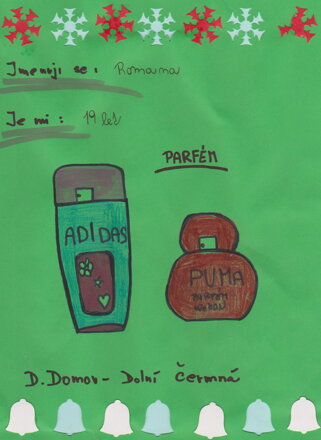 Jmenuji se: Romana
Je mi: 19 let
PARFÉM
ADIDAS
PUMA
PARFÉM
WOMAN
D. Domov - Dolní Čermná